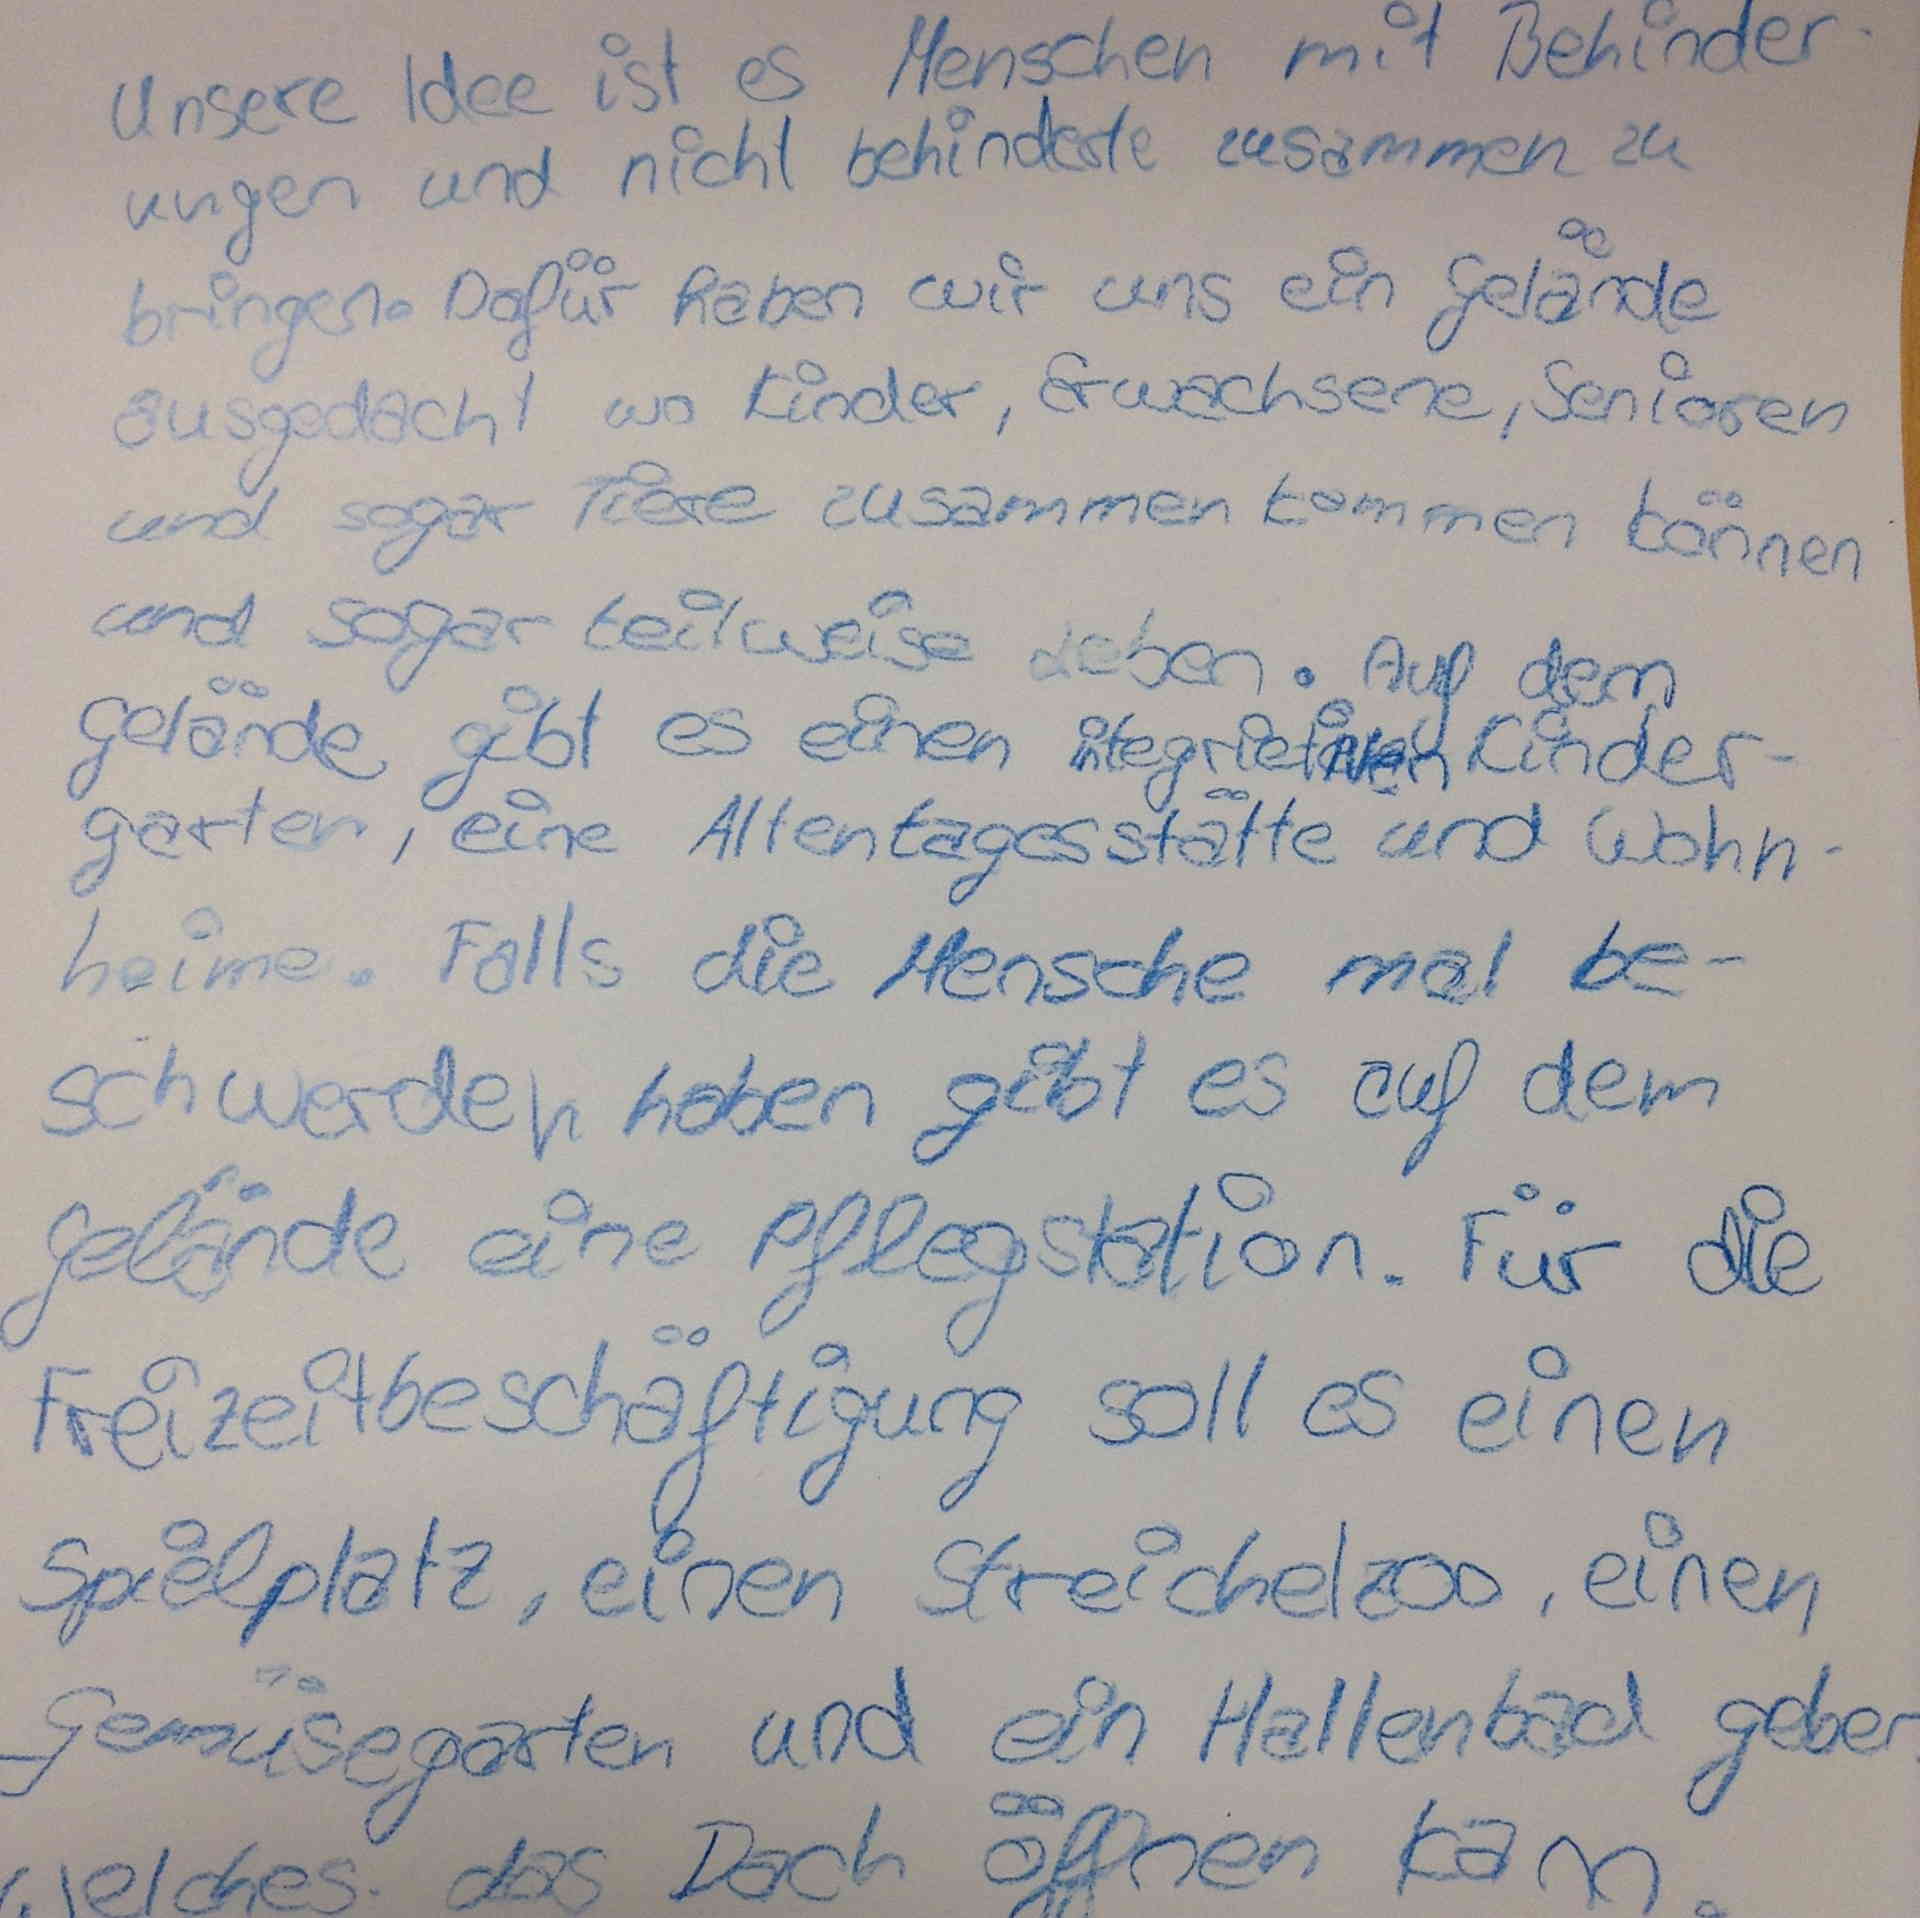 Unsere Idee ist es Menschen mit Behinder-
ungen und nicht behinderte zusammen zu
bringen. Dafür haben wir uns ein Gelände
ausgedacht wo Kinder, Erwachsene, Senioren
und sogar Tiere zusammen kommen können
und sogar teilweise leben. Auf dem
Gelände gibt es einen Kinder-
garten, eine Altentagesstätte und Wohn-
heime. Falls die Mensche mal be-
schwerden haben gibt es auf dem
Gelände eine Pflegstation. Für die
Freizeitbeschäftigung soll es einen
Spielplatz, einen Streichelzoo, einen
Gemüsegarten und ein Hallenbad geben
welches das Dach öffnen kann.